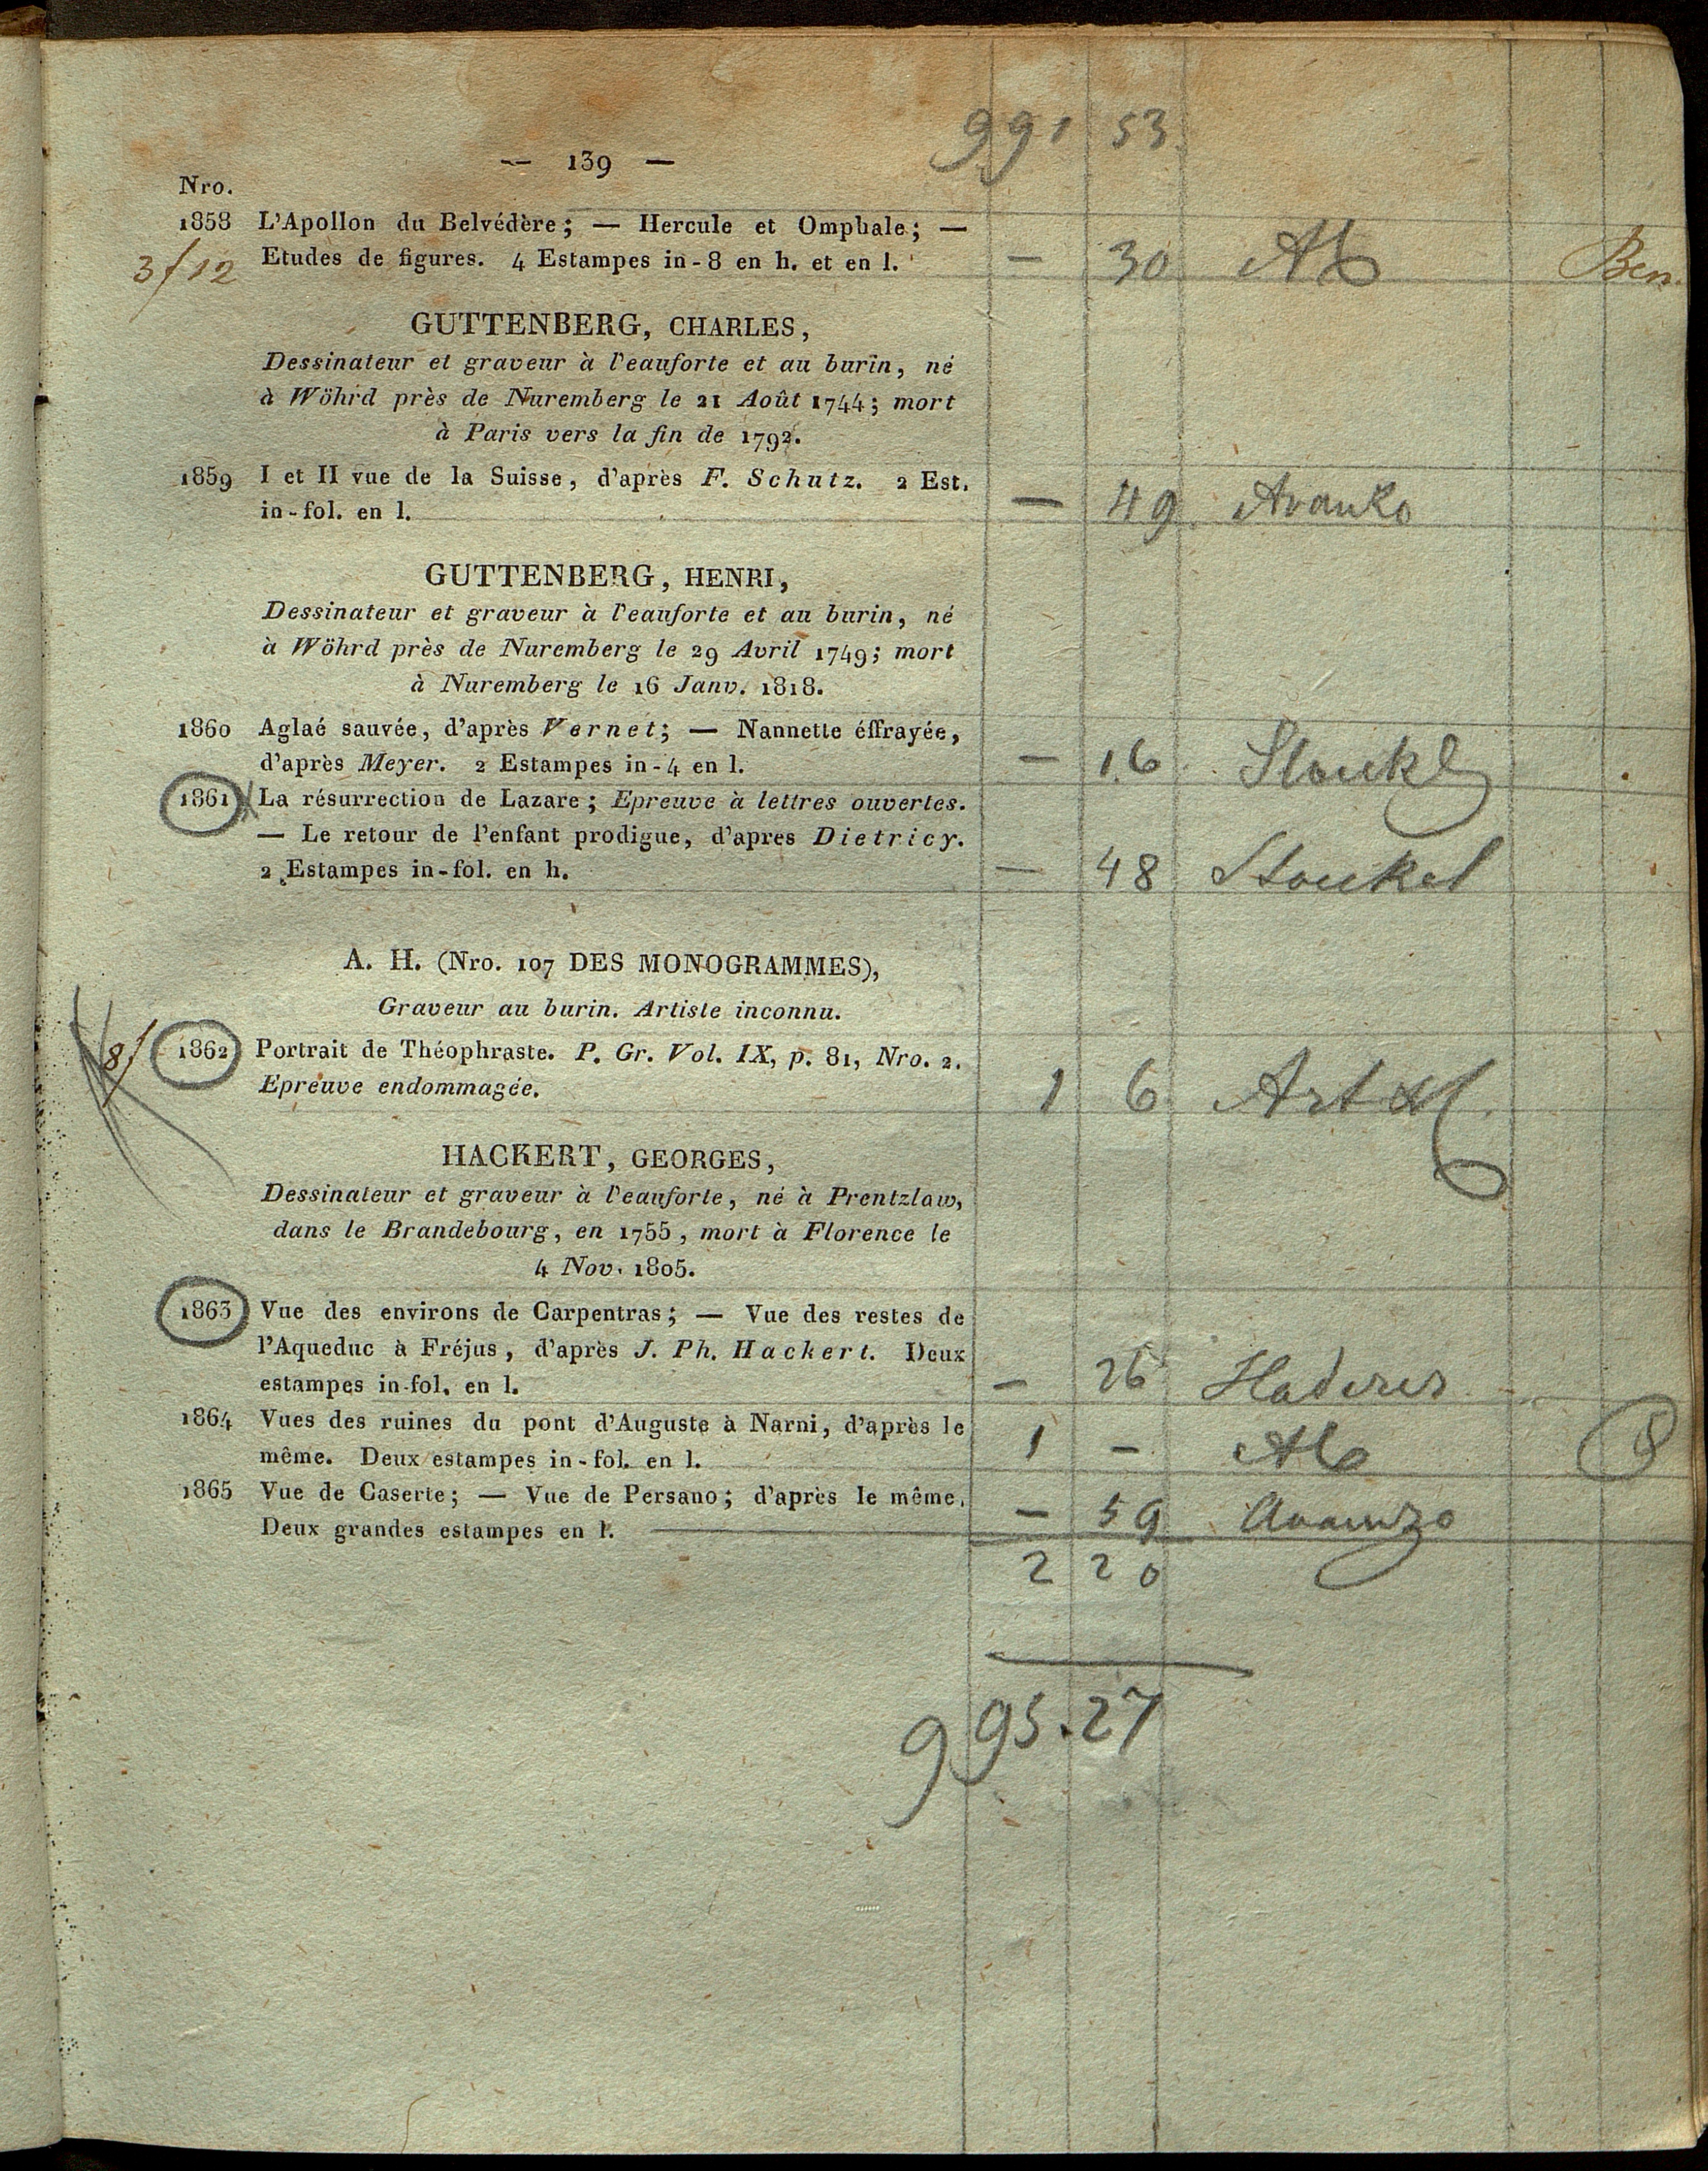 991 53
— 139 —
Nro.
1858 L'Apollon du Belvédère; — Hercule et Omphale; —
3/12 Etudes de figures. 4 Estampes in-8 en h. et en l. — 30 Ben
GUTTENBERG, CHARLES,
Dessinateur et graveur à l'eauforte et au burin, né
à Wöhrd près de Nuremberg le 21 Août 1744; mort
à Paris vers la fin de 1792.
1859 I et II vue de la Suisse, d'après F. Schutz. 2 Est.
in-fol. en l. — 49
GUTTENBERG, HENRI,
Dessinateur et graveur à l'eauforte et au burin, né
à Wöhrd près de Nuremberg le 29 Avril 1749; mort
à Nuremberg le 16 Janv. 1818.
1860 Aglaé sauvée, d'après Vernet; — Nannette éffrayée,
d'après Meyer. 2 Estampes in-4 en l. — 16
1861 La résurrection de Lazare; Epreuve à lettres ouvertes.
— Le retour de l'enfant prodigue, d'apres Dietricy.
2 Estampes in-fol. en h. — 48 Stoukel
A. H. (Nro. 107 DES MONOGRAMMES),
Graveur au burin. Artiste inconnu.
8/ 1862 Portrait de Théophraste. P. Gr. Vol. IX, p. 81, Nro. 2.
Epreuve endommagée. 1 6
HACKERT, GEORGES,
Dessinateur et graveur à l'eauforte, né à Prentzlaw,
dans le Brandebourg, en 1755, mort à Florence le
4 Nov. 1805.
1863 Vue des environs de Carpentras; — Vue des restes de
l'Aqueduc à Fréjus, d'après J. Ph. Hackert. Deux
estampes in-fol. en l. — 26
1864 Vues des ruines du pont d'Auguste à Narni, d'après le
même. Deux estampes in-fol. en l. 1 —
1865 Vue de Caserte; — Vue de Persano; d'après le même.
Deux grandes estampes en l. — 59
2 20
995.27